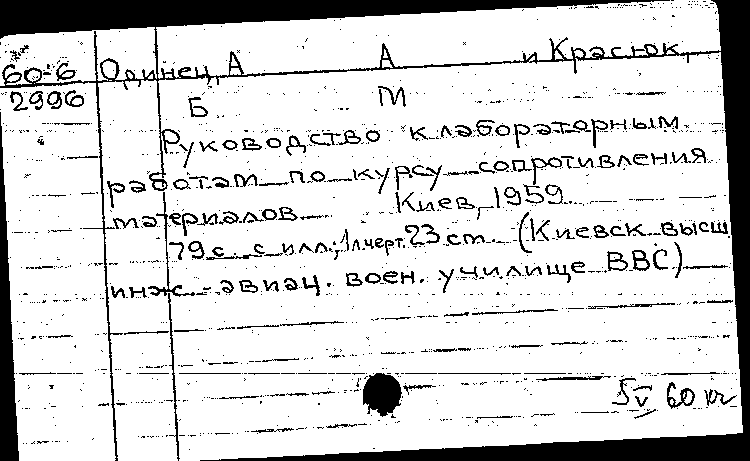 60-6 Одинец, А А и Красюк,
2996 Б М
Руководство к лабораторным
работам по курсу сопротивления
материалов Киев, 1959
79 с. с илл.; 1 л. черт. 23 ст. (Киевск. высш
инж.-авиац. воен. училище ВВС)
5 V 60 кг